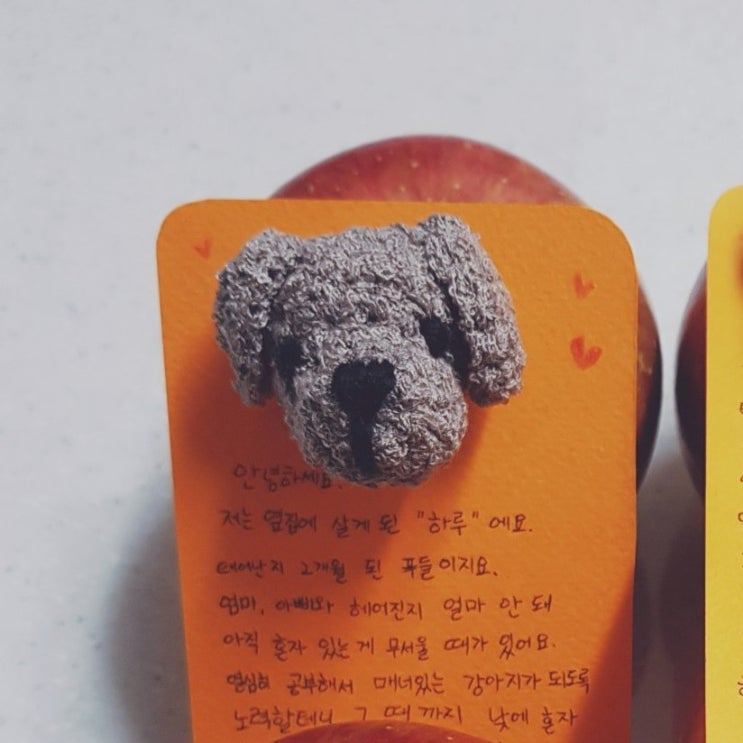 안녕하세요.
저는 옆집에 살게 된 "하루" 에요.
태어난지 2개월 된 푸들이지요.
엄마, 아빠와 헤어진지 얼마 안 돼
아직 혼자 있는 게 무서울 때가 있어요.
열심히 공부해서 매너있는 강아지가 되도록
노력할테니 그 때 까지 낮에 혼자